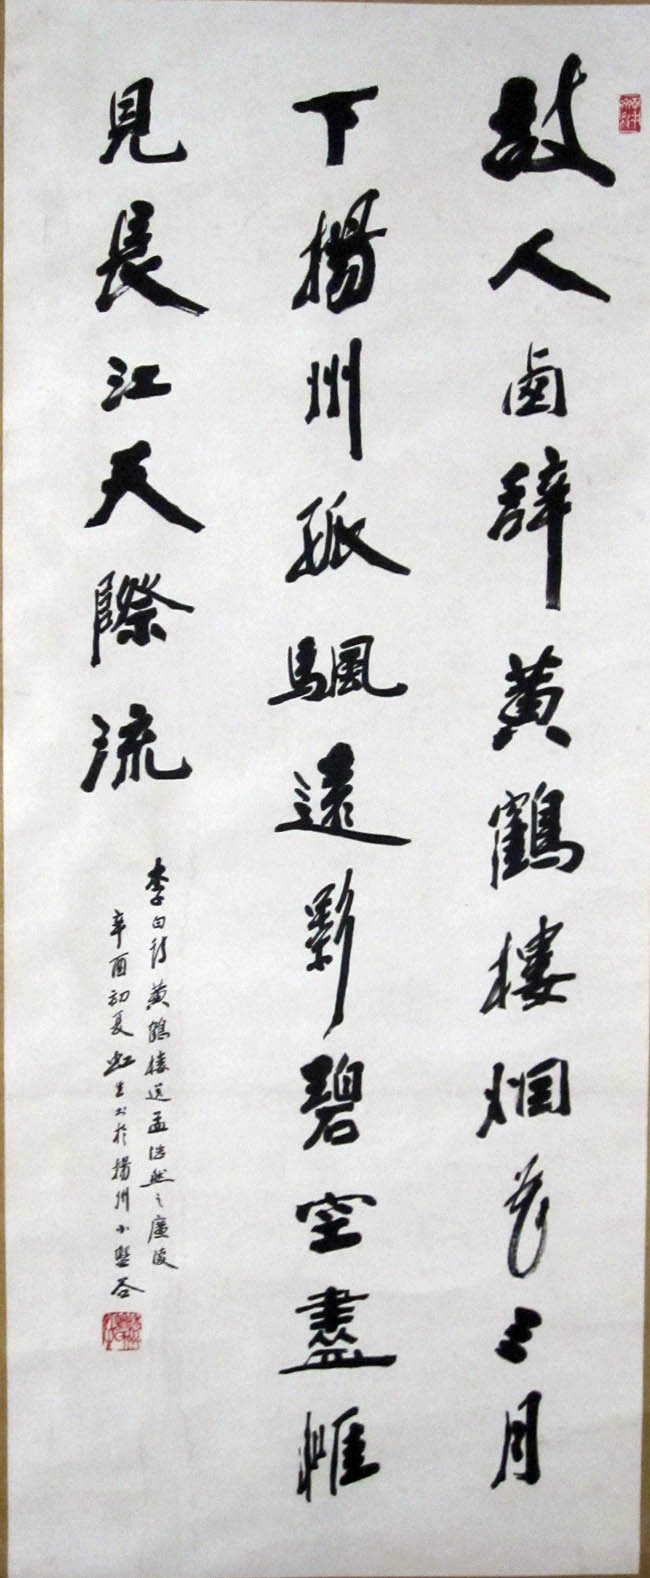 故人卥辭黃鶴樓烟花三月
下揚州孤颿遠影碧空盡惟
見長江天際流
李白詩黃鶴樓送孟浩然之廣陵
辛酉初夏虹生书於揚州小盤谷